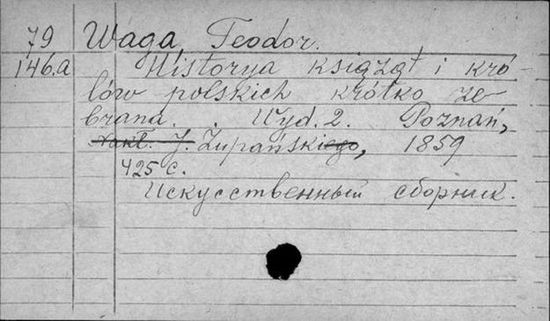 79 Waga, Teodor.
146.a Historya książąt i kró-
lów polskich krótko ze-
brana. . Wyd. 2. Poznań,
nakł. J. Żupańskiego, 1859
425 с.
Искусственный сборник.